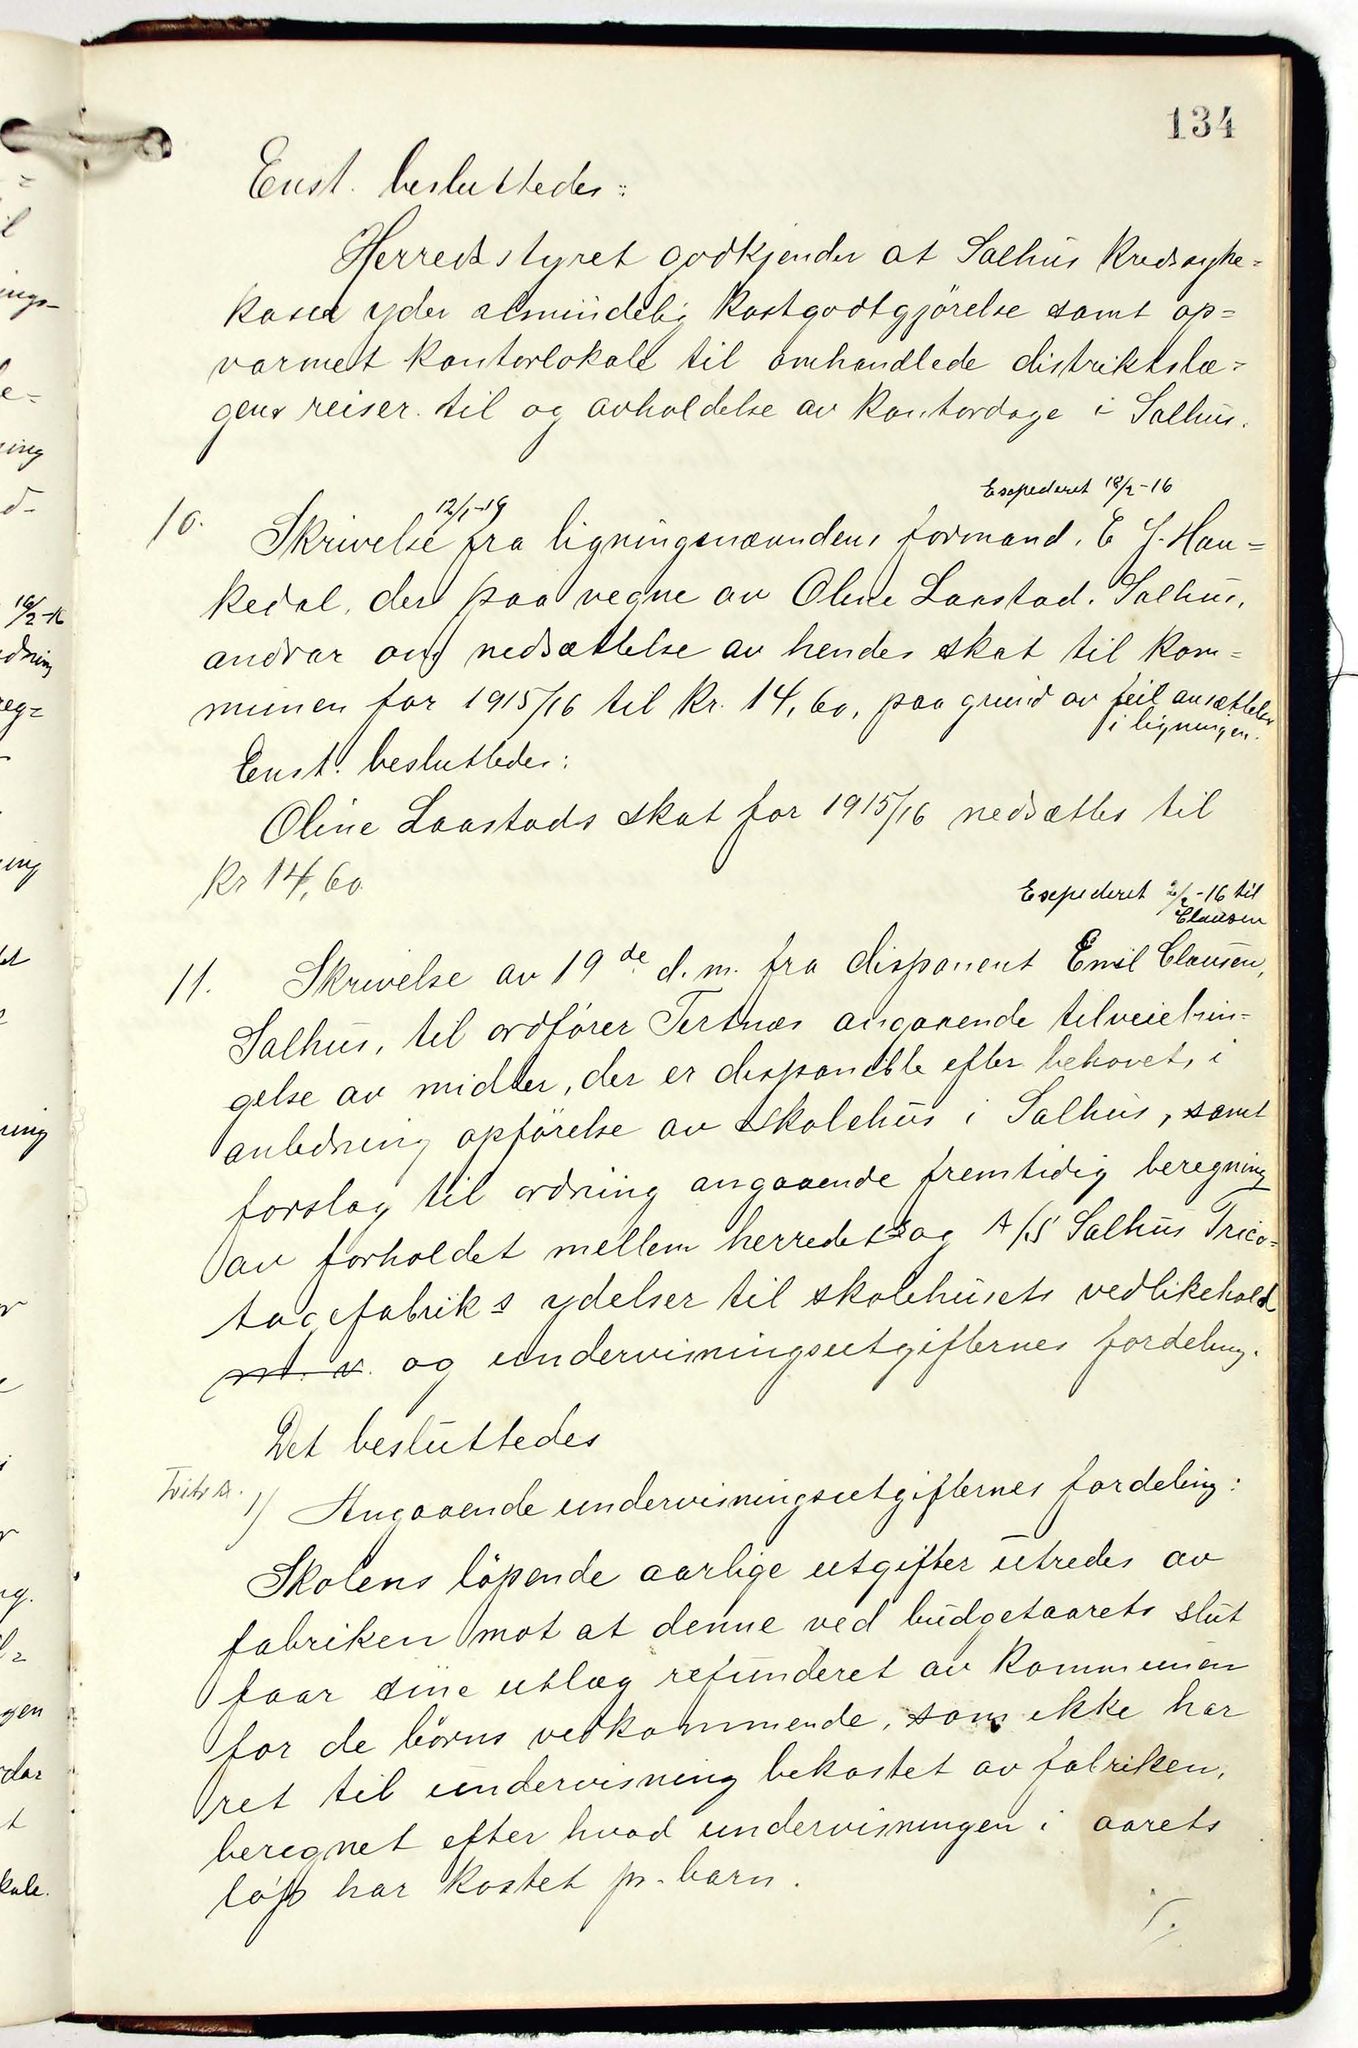 134
Enst. besluttedes:
Herredsstyret godkjender at Salhus Kredssyke=
kasse yder almindelig kostgodtgjörelse samt op=
varmet kontorlokale til omhandlede distriktslæ=
gens reiser til og avholdelse av kontordage i Salhus.
Expederet 18/2-16
12/1-19
10. Skrivelse fra ligningsnævndens formand. E J. Hau=
kedal, der paa vegne av Oline Laastad. Salhus,
andrar om nedsættelse av hendes skat til kom=
munen for 1915/16 til kr. 14,60, paa grund av feil ansættelse
i ligningen.
Enst. besluttedes:
Oline Laastads skat for 1915/16 nedsættes til
kr 14,60
Expederet 2/2-16 til
Clausen
11. Skrivelse av 19de d.m. fra disponent Emil Clausen,
Salhus, til ordfører Tertnæs angaaende tilveiebrin-
gelse av midler, der er disponible efter behovet, i
anledning opförelse av skolehus i Salhus, samt
forslag til ordning angaaende fremtidig beregning
av forholdet mellem herredets og A/S Salhus Trico=
tagefabriks ydelser til skolehusets vedlikehold
m. v. og undervisningsutgifternes fordeling.
Det besluttedes
1) Angaaende undervisningsutgifternes fordeling:
Skolens löpende aarlige utgifter utredes av
fabriken mot at denne ved budgetaarets slut
faar sine utlæg refunderet av kommunen
for de börns vedkommende, som ikke har
ret til undervisning bekostet av fabriken,
beregnet efter hvad undervisningen i aarets
löp har kostet pr. barn.